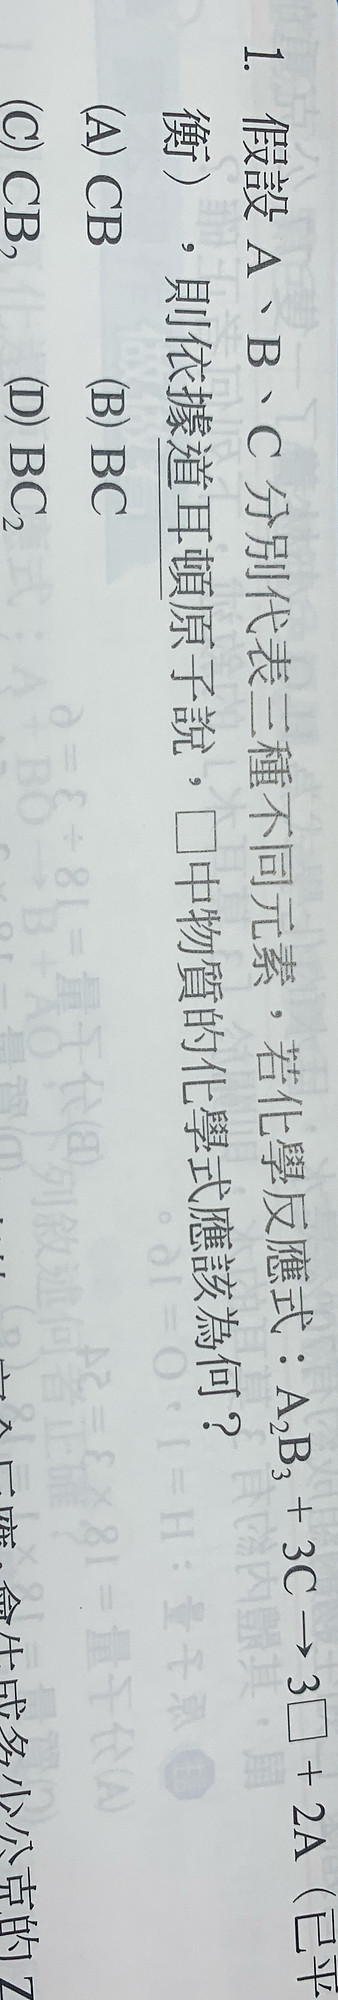 1. 假設 A、B、C 分別代表三種不同元素，若化學反應式：A₂B₃ + 3C → 3□ + 2A（已平
衡），則依據道耳頓原子說，□中物質的化學式應該為何？
(A) CB (B) BC
(C) CB₂ (D) BC₂
會生成多少公克的 Z